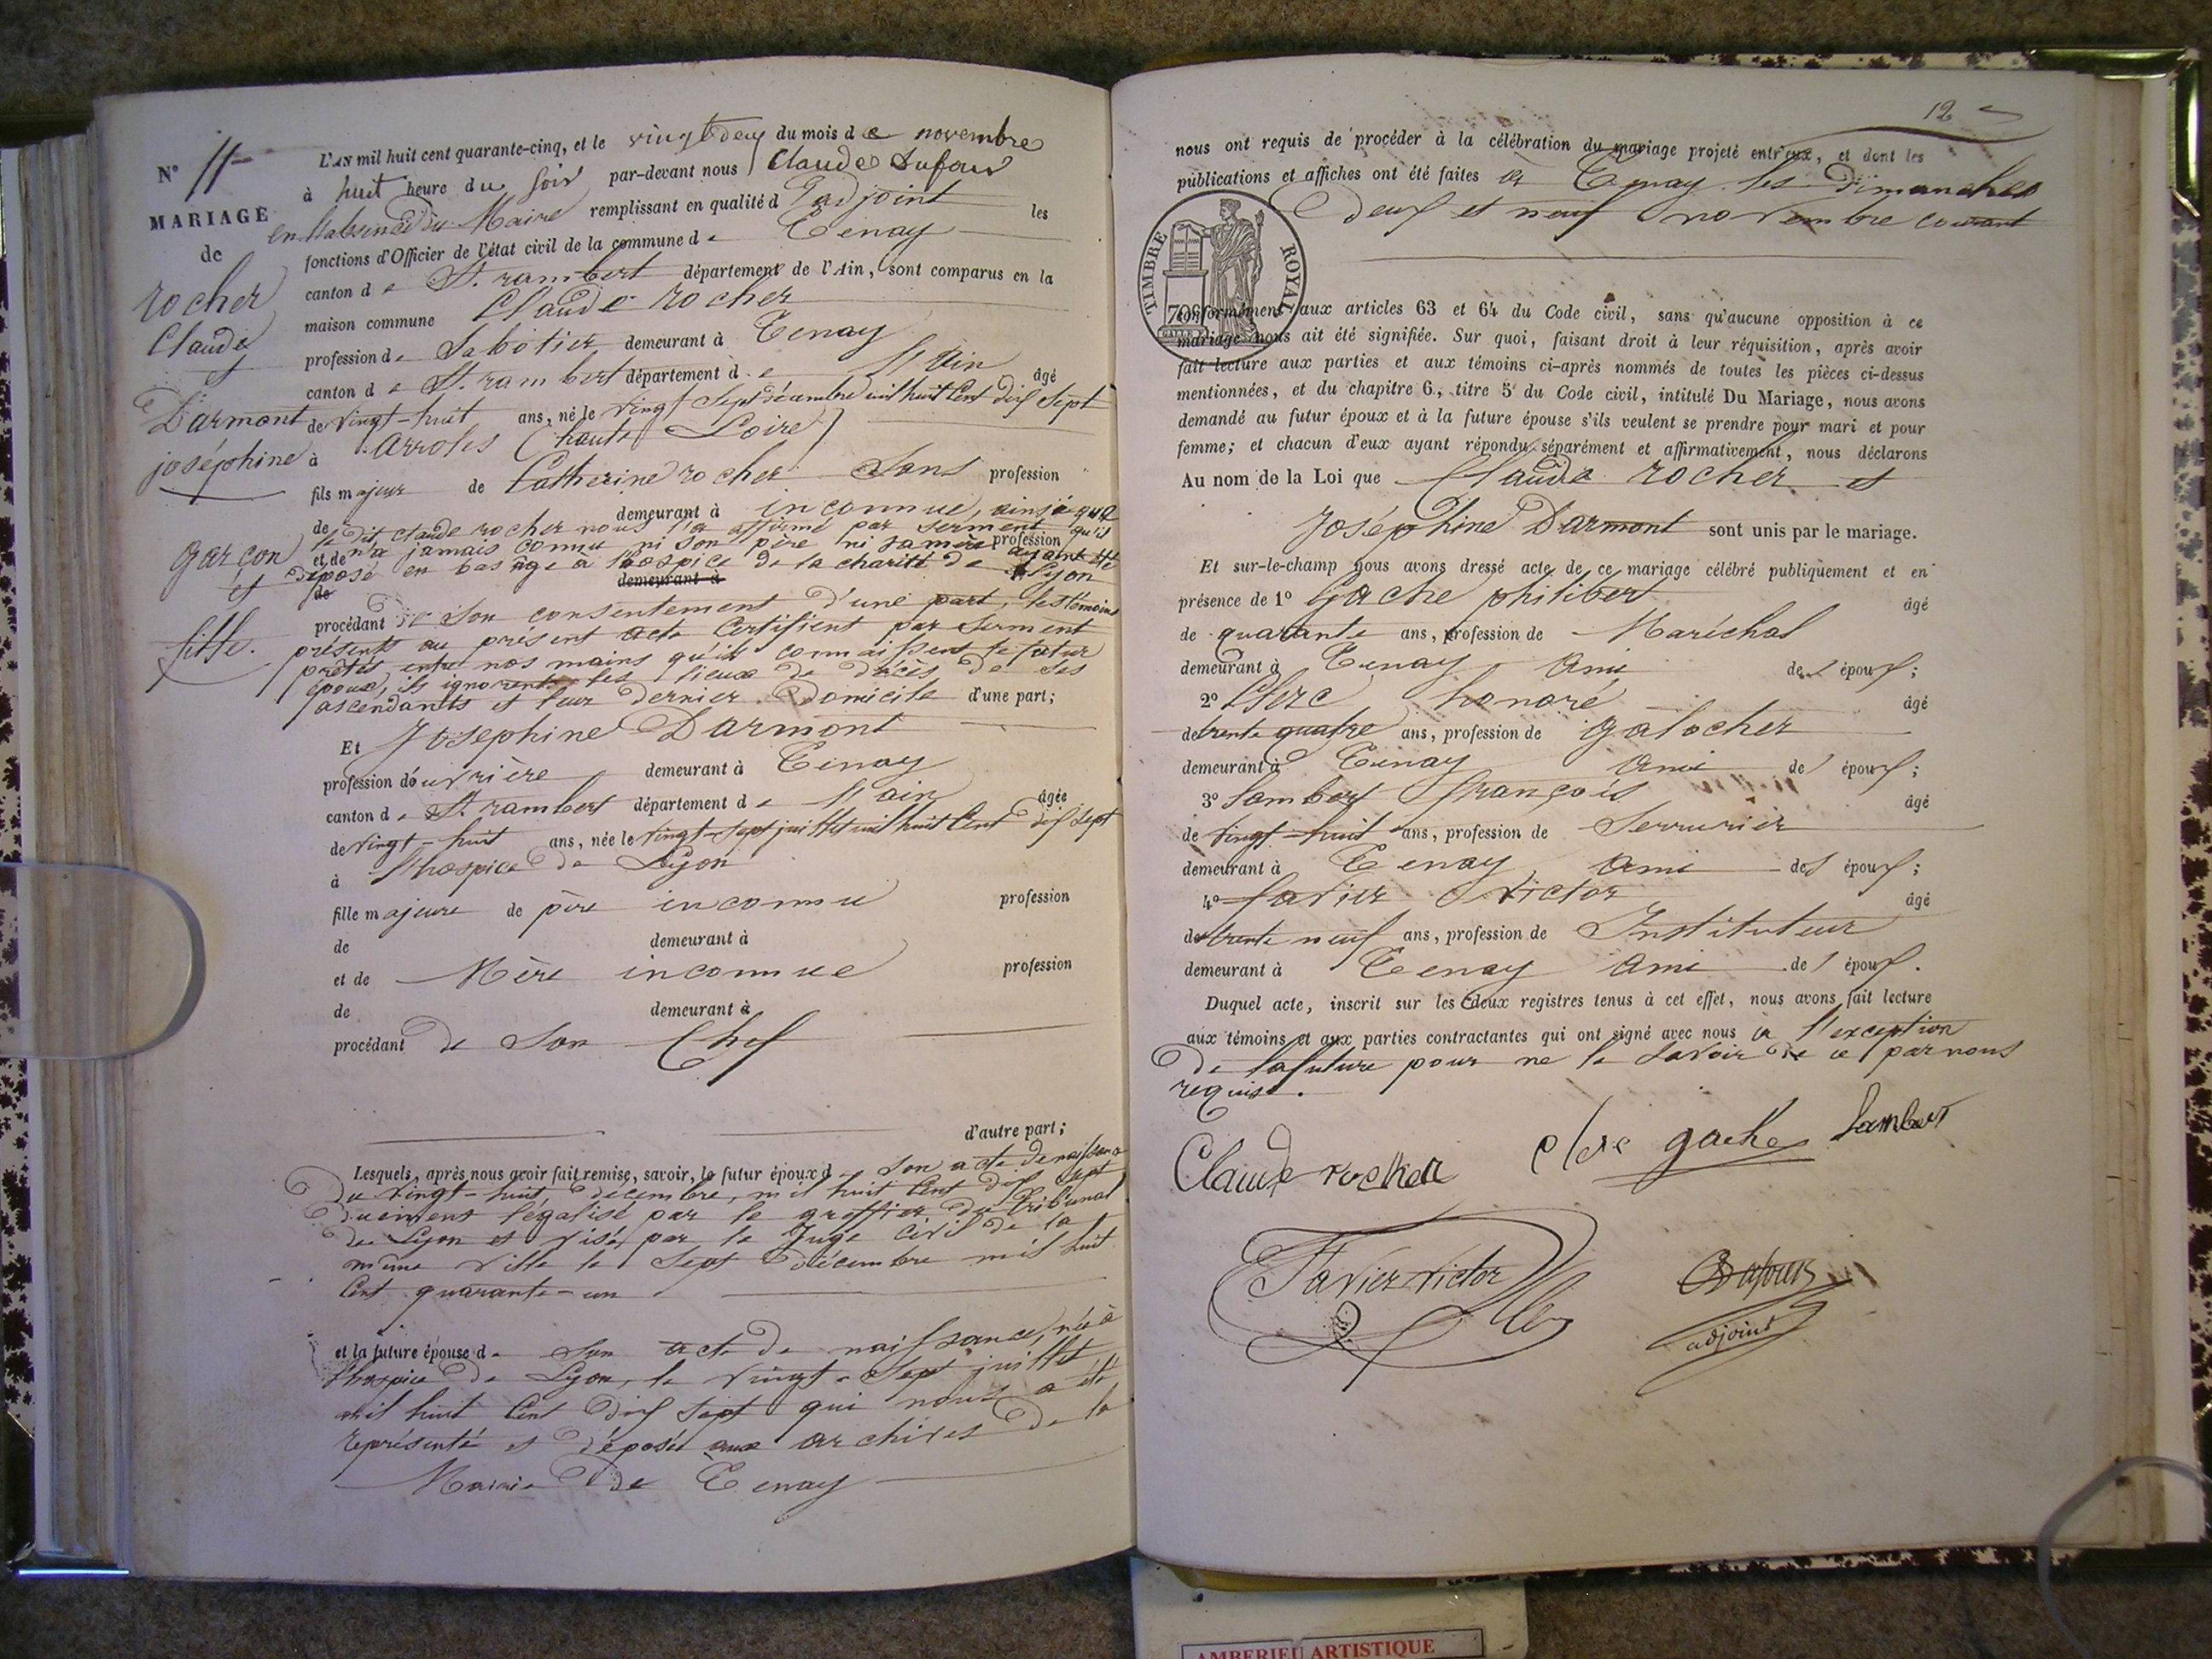 N° 11
MARIAGE
de
rocher
Claude
et
Darmont
joséphine
garçon
et
fille.
L'AN mil huit cent quarante-cinq, et le vingt deux du mois de novembre
à huit heure du soir par-devant nous Claude Dufour
en l'absence du Maire remplissant en qualité d'adjoint les
fonctions d'Officier de l'état civil de la commune de Tenay
canton de St. rambert département de l'Ain, sont comparus en la
maison commune Claude rocher
profession de Sabotier demeurant à Tenay
canton de St. rambert département de l'Ain âgé
de vingt-huit ans, né le vingt Sept décembre mil huit Cent dix Sept
à (haute Loire)
fils majeur de Catherine rocher Sans profession
de demeurant à inconnue, ainsi que
le dit claude rocher nous l'a affirmé par serment qu'il
et de n'a jamais connu ni son père ni sa mère profession ayant été
déposé en bas âge à l'hospice de la charité de Lyon
de demeurant à
procédant de Son consentement d'une part, les témoins
présents au présent acte Certifient par Serment
prêtés entre nos mains qu'ils connaissent le futur
époux, ils ignorent les lieux de décès de ses
ascendants et leur dernier Domicile d'une part;
Et Josephine Darmont
profession d'ouvrière demeurant à Tenay
canton de St. rambert département de l'ain âgée
de vingt-huit ans, née le vingt-Sept juillet mil huit Cent dix Sept
à l'hospice de Lyon
fille majeure de père inconnu profession
de demeurant à
et de Mère inconnue profession
de demeurant à
procédant de Son Chef
d'autre part;
Lesquels, après nous avoir fait remise, savoir, le futur époux de Son acte de naissance
du vingt-huit décembre, mil huit Cent dix Sept
duement légalisé par le greffier du tribunal
de Lyon et visé par le Juge Civil de la
même ville le Sept décembre mil huit
Cent quarante-un
et la future épouse de Son acte de naissance, née à
l'hospice de Lyon, le vingt-Sept juillet
mil huit Cent dix Sept qui nous a été
représenté et déposée aux archives de la
Mairie de Tenay
12
nous ont requis de procéder à la célébration du mariage projeté entr'eux, et dont les
publications et affiches ont été faites à Tenay les Dimanches
deux et neuf novembre courant
TIMBRE ROYAL
Conformément aux articles 63 et 64 du Code civil, sans qu'aucune opposition à ce
mariage nous ait été signifiée. Sur quoi, faisant droit à leur réquisition, après avoir
fait lecture aux parties et aux témoins ci-après nommés de toutes les pièces ci-dessus
mentionnées, et du chapitre 6, titre 5 du Code civil, intitulé Du Mariage, nous avons
demandé au futur époux et à la future épouse s'ils veulent se prendre pour mari et pour
femme; et chacun d'eux ayant répondu séparément et affirmativement, nous déclarons
Au nom de la Loi que Claude rocher et
Joséphine Darmont sont unis par le mariage.
Et sur-le-champ nous avons dressé acte de ce mariage célébré publiquement et en
présence de 1° Gache philibert âgé
de quarante ans, profession de Maréchal
demeurant à Tenay ami des époux;
2° Clerc honoré âgé
de trente quatre ans, profession de galocher
demeurant à Tenay ami des époux;
3° Lambert françois âgé
de vingt-huit ans, profession de Serrurier
demeurant à Tenay ami des époux;
4° favier Victor âgé
de trente neuf ans, profession de Instituteur
demeurant à Tenay ami des époux.
Duquel acte, inscrit sur les deux registres tenus à cet effet, nous avons fait lecture
aux témoins et aux parties contractantes qui ont signé avec nous à l'exception
de la future pour ne le Savoir de ce par nous
requise.
Claude rocher clerc gache Lambert
Favier victor Dufour
adjoint
AMBERIEU ARTISTIQUE